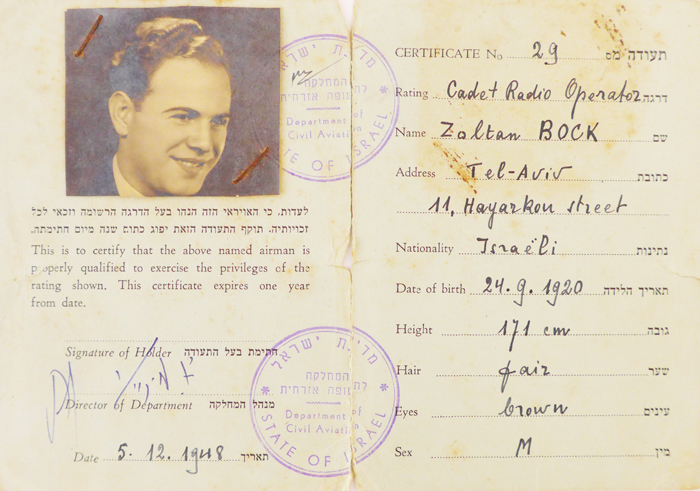 מדינת ישראל
המחלקה
לתעופה אזרחית
Department of
Civil Aviation
STATE OF ISRAEL
לעדות, כי האויראי הזה הנהו בעל הדרגה הרשומה וזכאי לכל
זכויותיה. תוקף התעודה הזאת יפוג כתום שנה מיום חתימתה.
This is to certify that the above named airman is
properly qualified to exercise the privileges of the
rating shown. This certificate expires one year
from date.
Signature of Holder חתימת בעל התעודה
Director of Department מנהל המחלקה
Date 5. 12. 1948 תאריך
מדינת ישראל
המחלקה
לתעופה אזרחית
Department of
Civil Aviation
STATE OF ISRAEL
CERTIFICATE No 29 תעודה מס
Rating Cadet Radio Operator דרגה
Name Zoltan BOCK שם
Address Tel-Aviv כתובת
11, Hayarkon street
Nationality Israëli נתינות
Date of birth 24. 9. 1920 תאריך הלידה
Height 171 cm גובה
Hair fair שער
Eyes brown עינים
Sex M מין